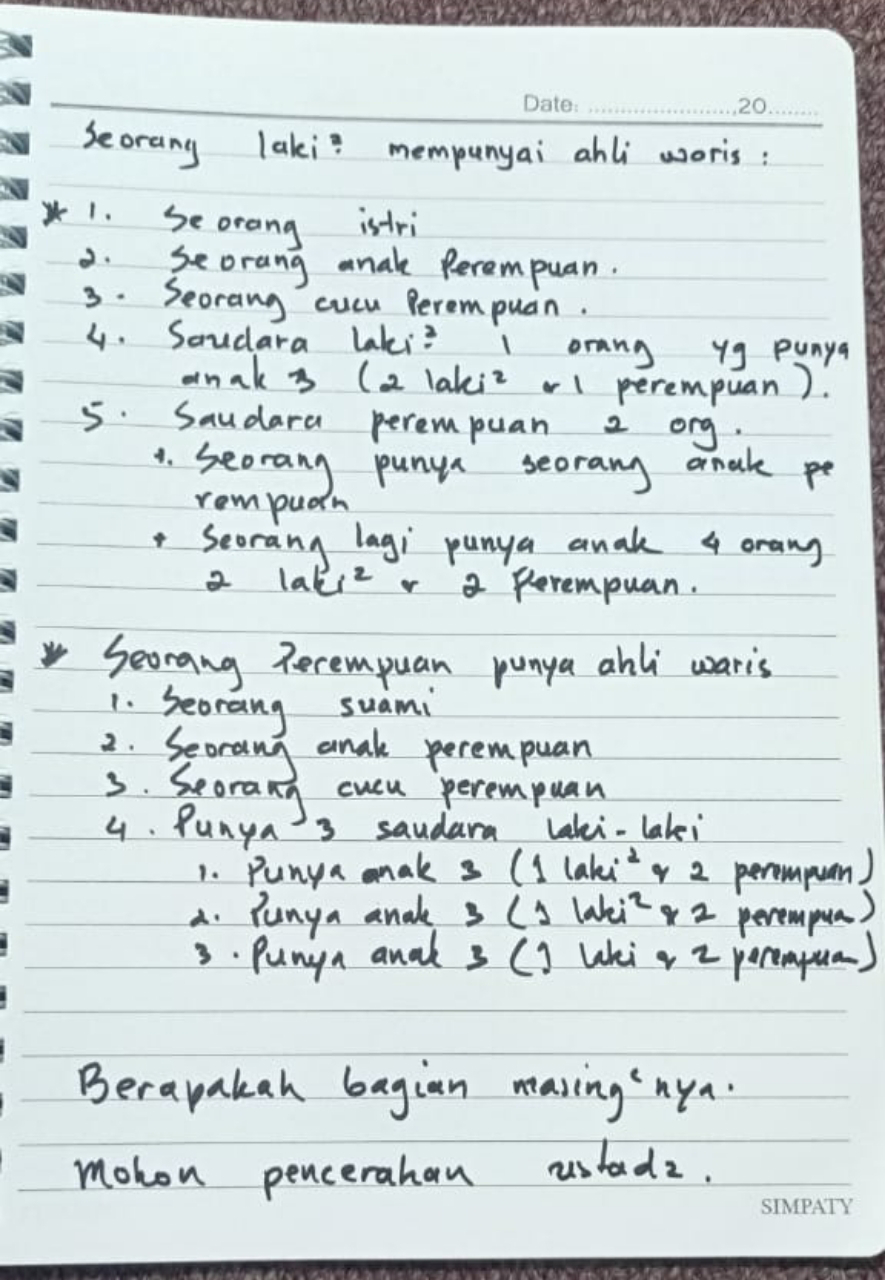 Date: ........................,20........
Seorang laki² mempunyai ahli waris :
* 1. Seorang istri
2. Seorang anak Perempuan.
3. Seorang cucu Perempuan.
4. Saudara laki² 1 orang yg punya
anak 3 (2 laki² & 1 perempuan).
5. Saudara perempuan 2 org.
+. Seorang punya seorang anak pe
rempuan
+ Seorang lagi punya anak 4 orang
2 laki² & 2 Perempuan.
* Seorang Perempuan punya ahli waris
1. Seorang suami
2. Seorang anak perempuan
3. Seorang cucu perempuan
4. Punya 3 saudara laki-laki
1. Punya anak 3 (1 laki² & 2 perempuan)
2. Punya anak 3 (1 laki² & 2 perempua)
3. Punya anak 3 (1 laki & 2 perempuan)
Berapakah bagian masing² nya.
Mohon pencerahan ustadz.
SIMPATY